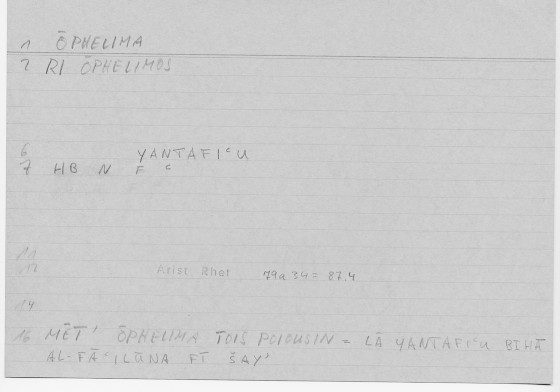 1 ŌPHELIMA
2 RI ŌPHELIMOS
6 YANTAFIʿU
7 HB N F ʿ
10
12 Arist Rhet 79a 34 = 87.4
14
16 MĒT' ŌPHELIMA TOIS POIOUSIN = LĀ YANTAFIʿU BIHĀ
AL-FĀʿILŪNA FĪ ŠAYʾ